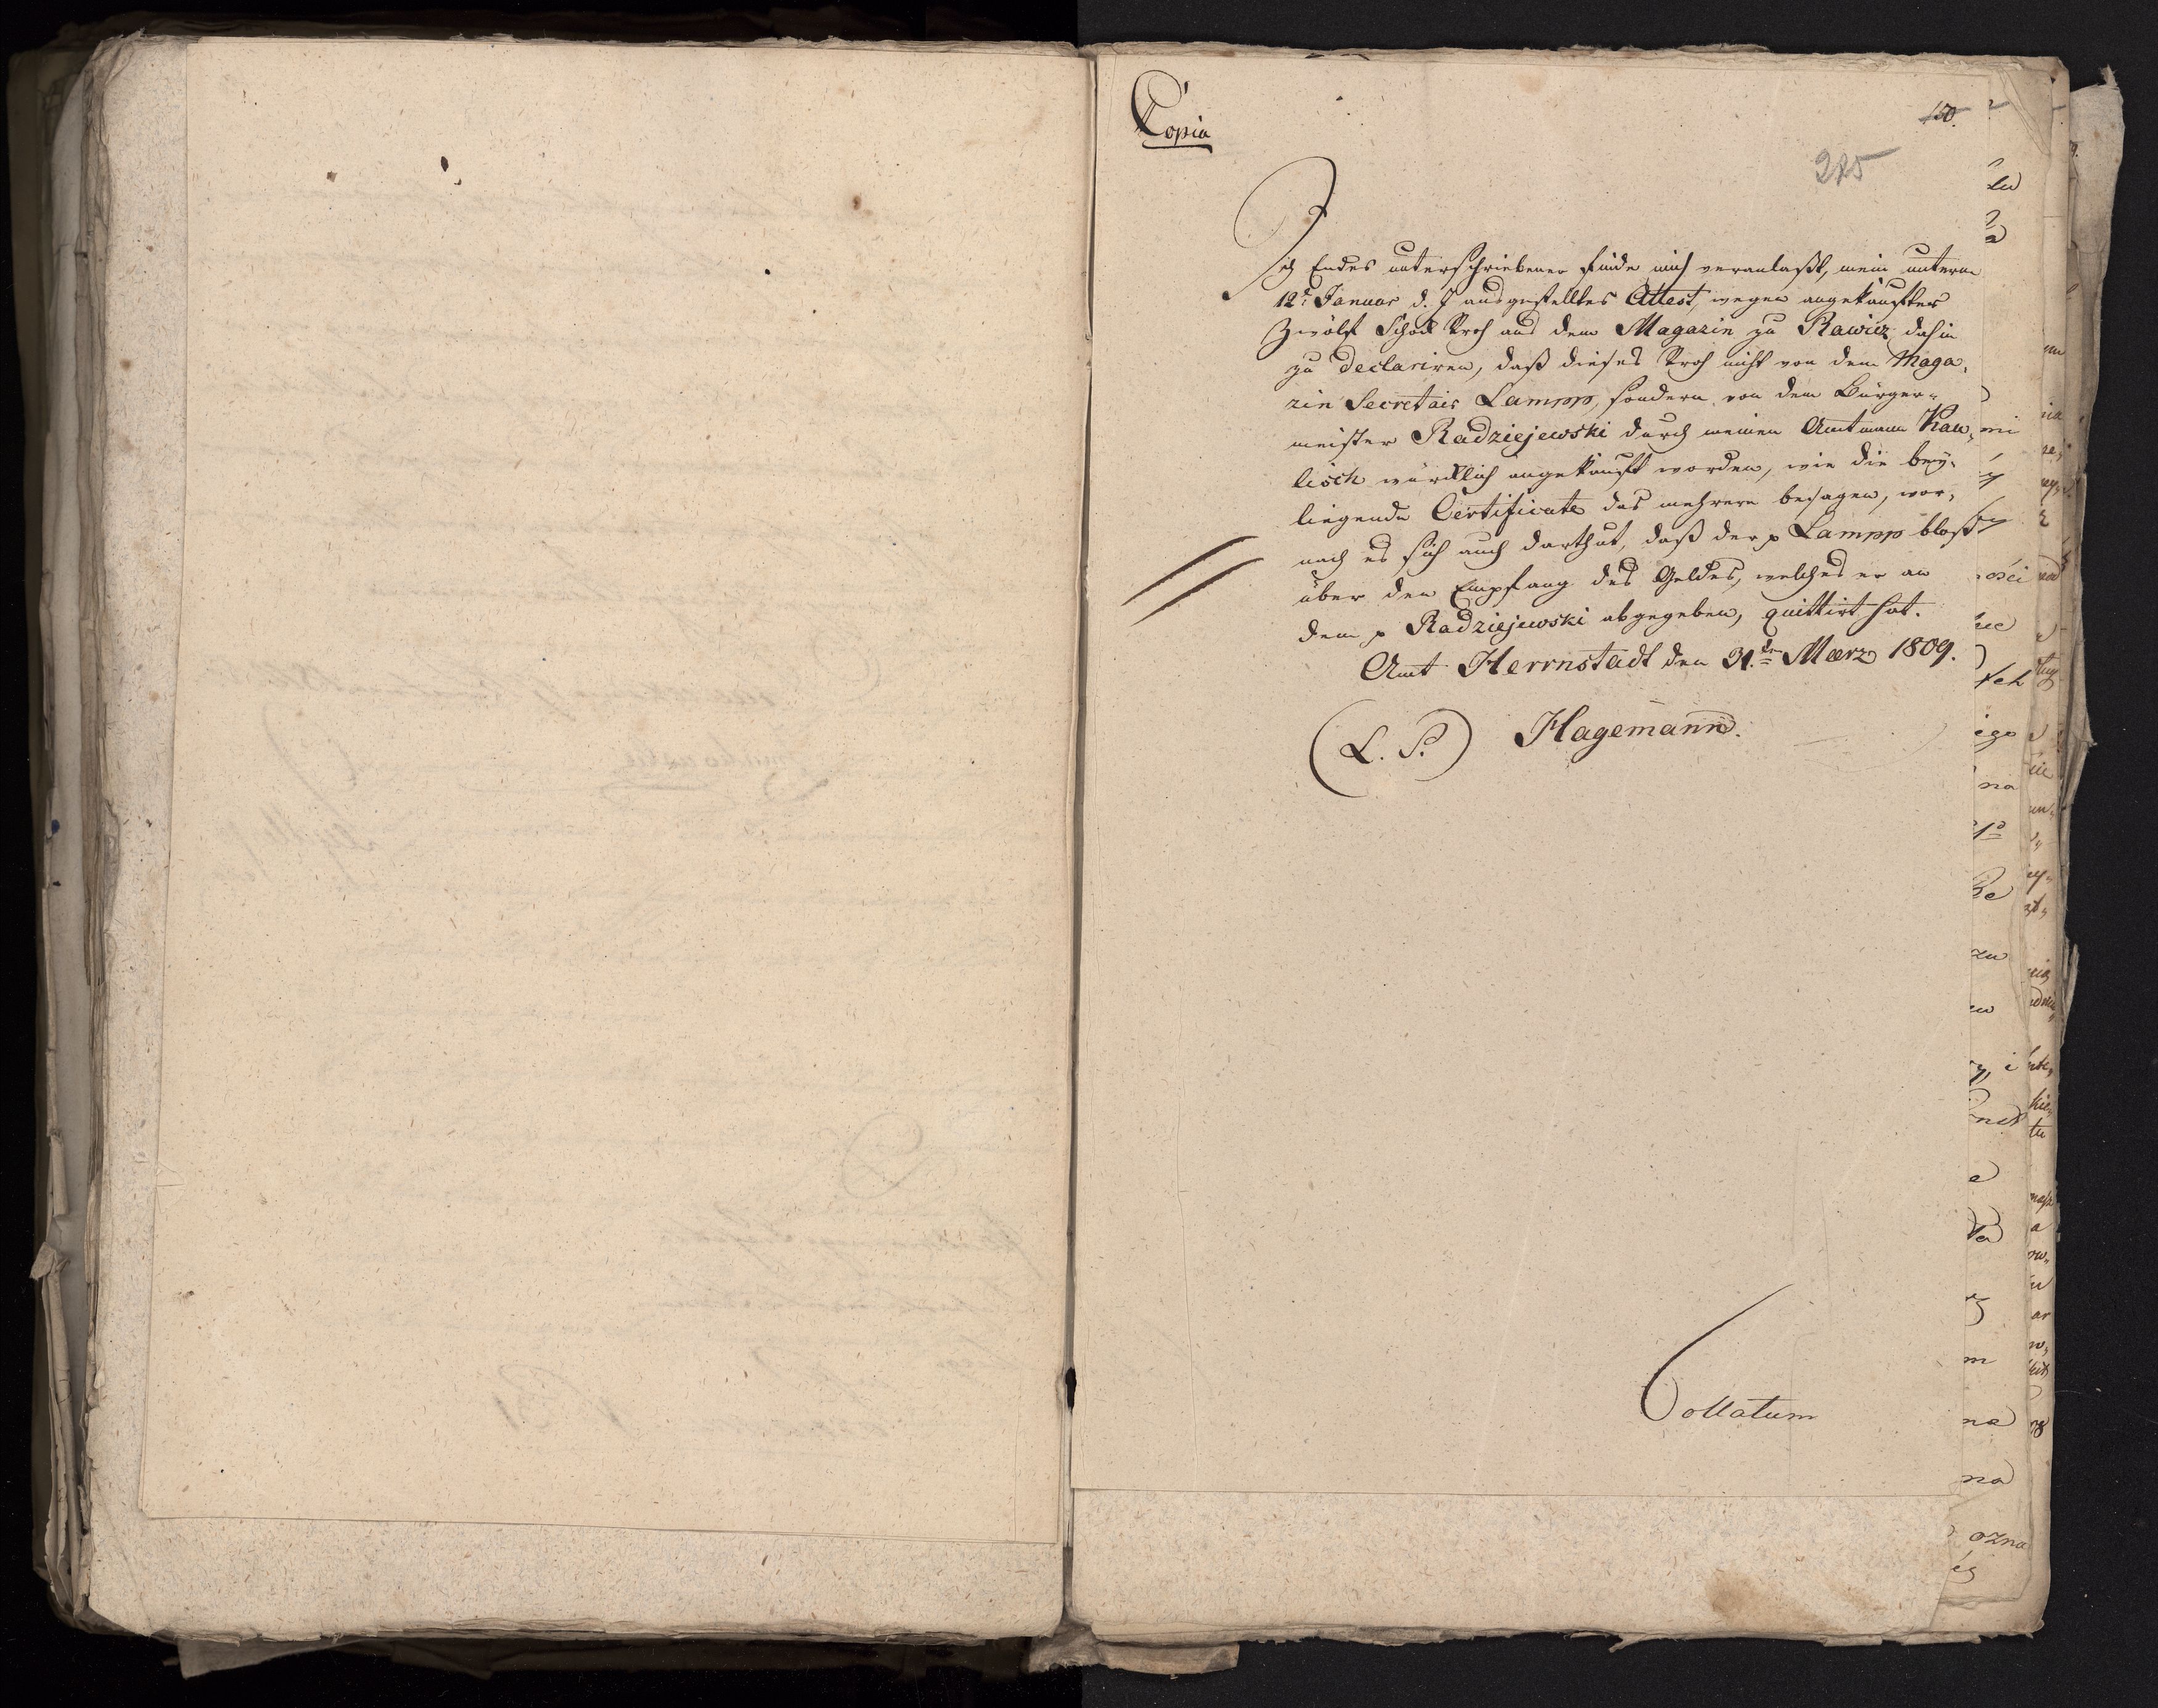 Copia
130.
215
Ich Endes unterschriebener finde mich veranlaßt, mein unterm
12t Januar d. J ausgestelltes Attest, wegen angekauftes
Zwölf Schock Stroh aus dem Magazin zu Rawicz dahin
zu declariren, daß dieses Stroh nicht von dem Maga,
zin Secretair Lampp, sondern von dem Bürger-
meister Radziejewski durch meinen Amtmann Kau,
lisch würcklich angekauft worden, wie die bey,
liegende Certificate das mehrere besagen, wor,
nach es sich auch darthut, daß der p Lampp blos
über den Empfang des Geldes, welches er an
dem p Radziejewski abgegeben, quittirt hat.
Amt Herrnstadt den 31.ten Maerz 1809.
(L. S.) Hagemann.
Collatum